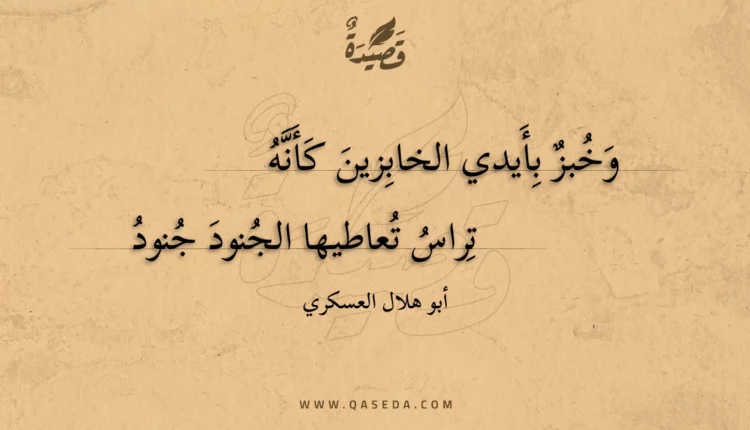 قَصِيْدَةٌ
وَخُبزٌ بِأَيدي الخابِزينَ كَأَنَّهُ
تِراسُ تُعاطيها الجُنودَ جُنودُ
أبو هلال العسكري
WWW.QASEDA.COM